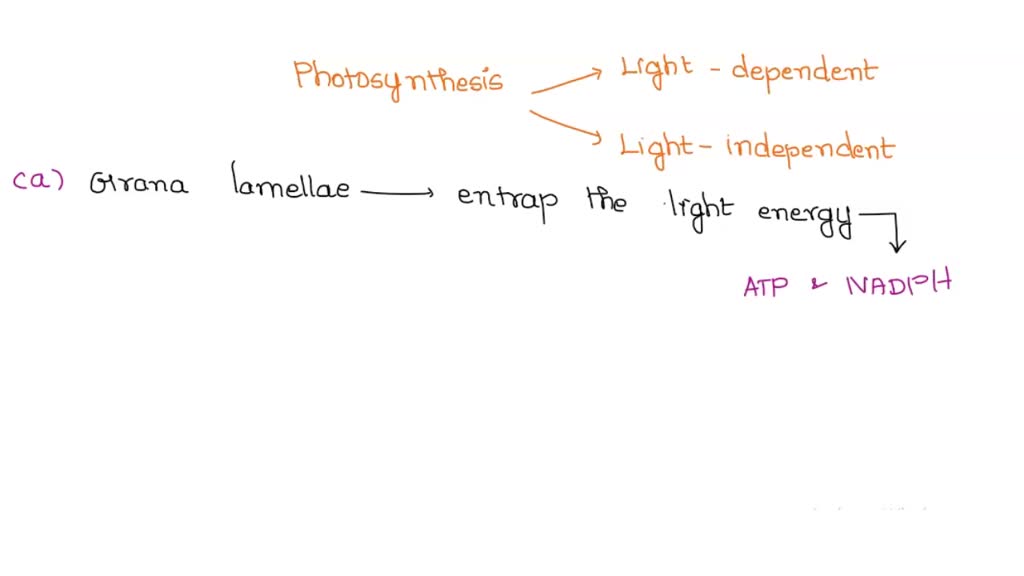 Photosynthesis
Light - dependent
Light - independent
(a) Grana lamellae → entrap the light energy
ATP & NADPH